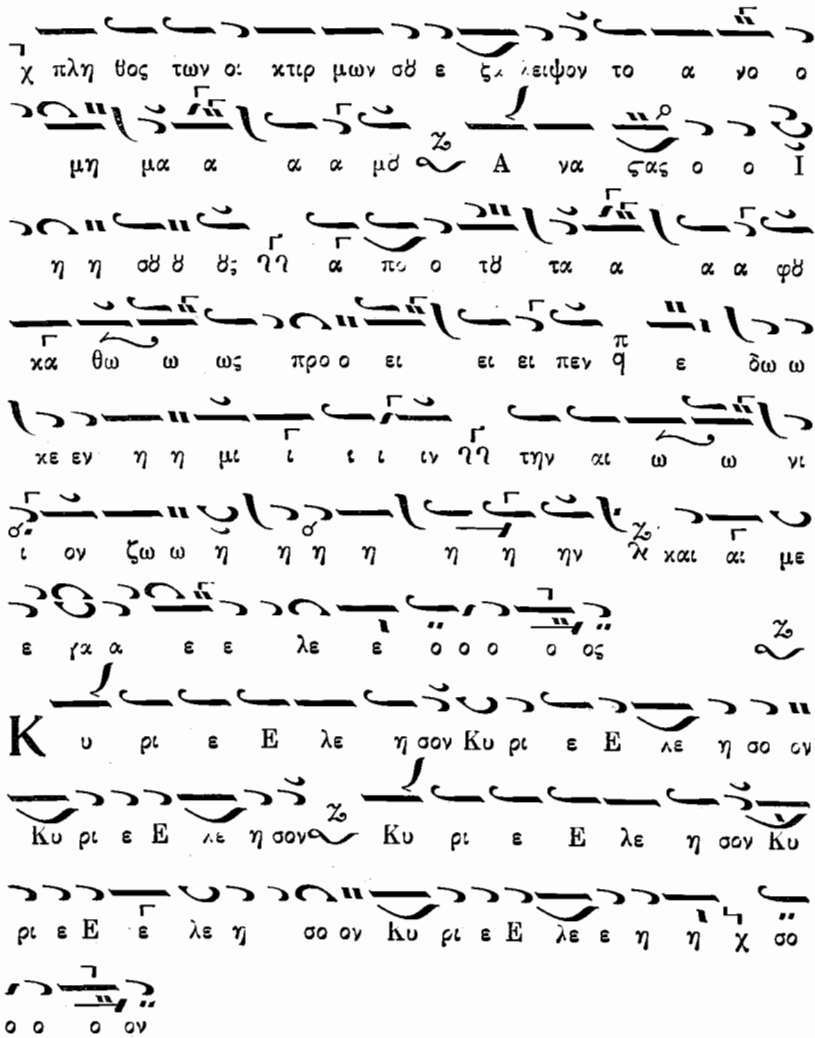 χ πλη θος των οι κτιρ μων σȣ ε ξα λειψον το α νο ο
μη μα α α α μȣ Α να ϛας ο ο Ι
η η σȣ ȣ ȣς α πο ο τȣ τα α α α φȣ
κα θω ω ως προ ο ει ει ει πεν π q ε δω ω
κε εν η η μι ι ι ι ιν την αι ω ω νι
ι ον ζω ω η η η η η η ην και αι με
ε γα α ε ε λε ε ο ο ο ο ος
Κ υ ρι ε Ε λε η σον Κυ ρι ε Ε λε η σο ον
Κυ ρι ε Ε λε η σον Κυ ρι ε Ε λε η σον Κυ
ρι ε Ε ε λε η σο ον Κυ ρι ε Ε λε ε η η χ σο
ο ο ο ον